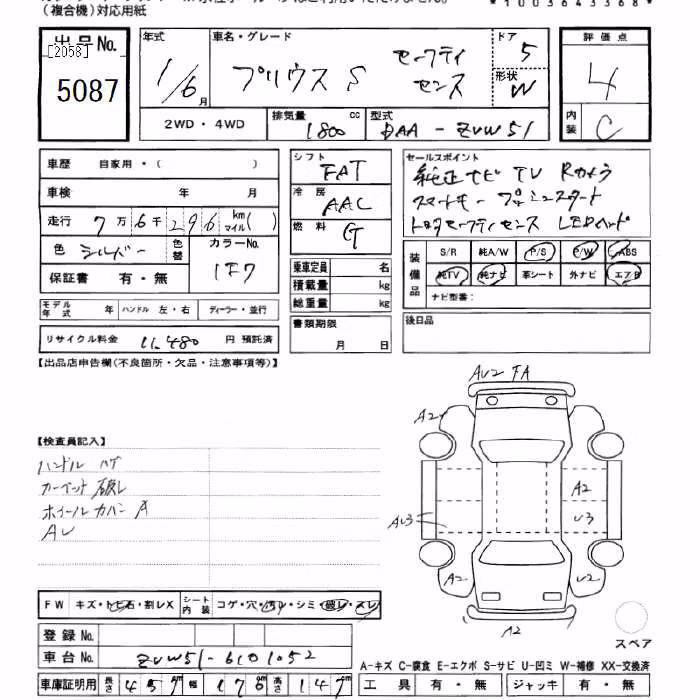 (複合機)対応用紙
*1003643368*
出品No.
[2058]
5087
年式
1/6月
車名・グレード
プリウス S セーフティ
センス
ドア
5
形状
W
評価点
4
内装
C
2WD・4WD
排気量 1800 cc
型式 DAA-ZVW51
車歴 自家用・( )
車検 年 月
走行 7万6千296 km マイル( )
色 シルバー
色替
カラーNo.
1F7
保証書 有・無
モデル年式 年 ハンドル 左・右 ディーラー・並行
リサイクル料金 11,480 円 預託済
シフト FAT
冷房 AAC
燃料 G
乗車定員 名
積載量 kg
総重量 kg
書類期限
月 日
セールスポイント
純正ナビ TV Rカメラ
スマートキー プッシュスタート
トヨタセーフティセンス LEDヘッド
装備品
S/R 純A/W P/S P/W ABS
純TV 純ナビ 革シート 外ナビ エアB
ナビ型番:
後日品
【出品店申告欄(不良箇所・欠品・注意事項等)】
【検査員記入】
ハンドル ハゲ
カーペット破レ
ホイールカバー A
AU
AU2 FA
A2
A2
AU3
U3
A2
U2
A2
スペア
FW キズ・トビ石・割レX
シート内装 コゲ・穴・汚レ・シミ・破レ・スレ
登録No.
車台No. ZVW51-6101052
A-キズ C-腐食 E-エクボ S-サビ U-凹ミ W-補修 XX-交換済
車庫証明用 長さ 457 幅 176 高さ 147
工具 有・無 ジャッキ 有・無